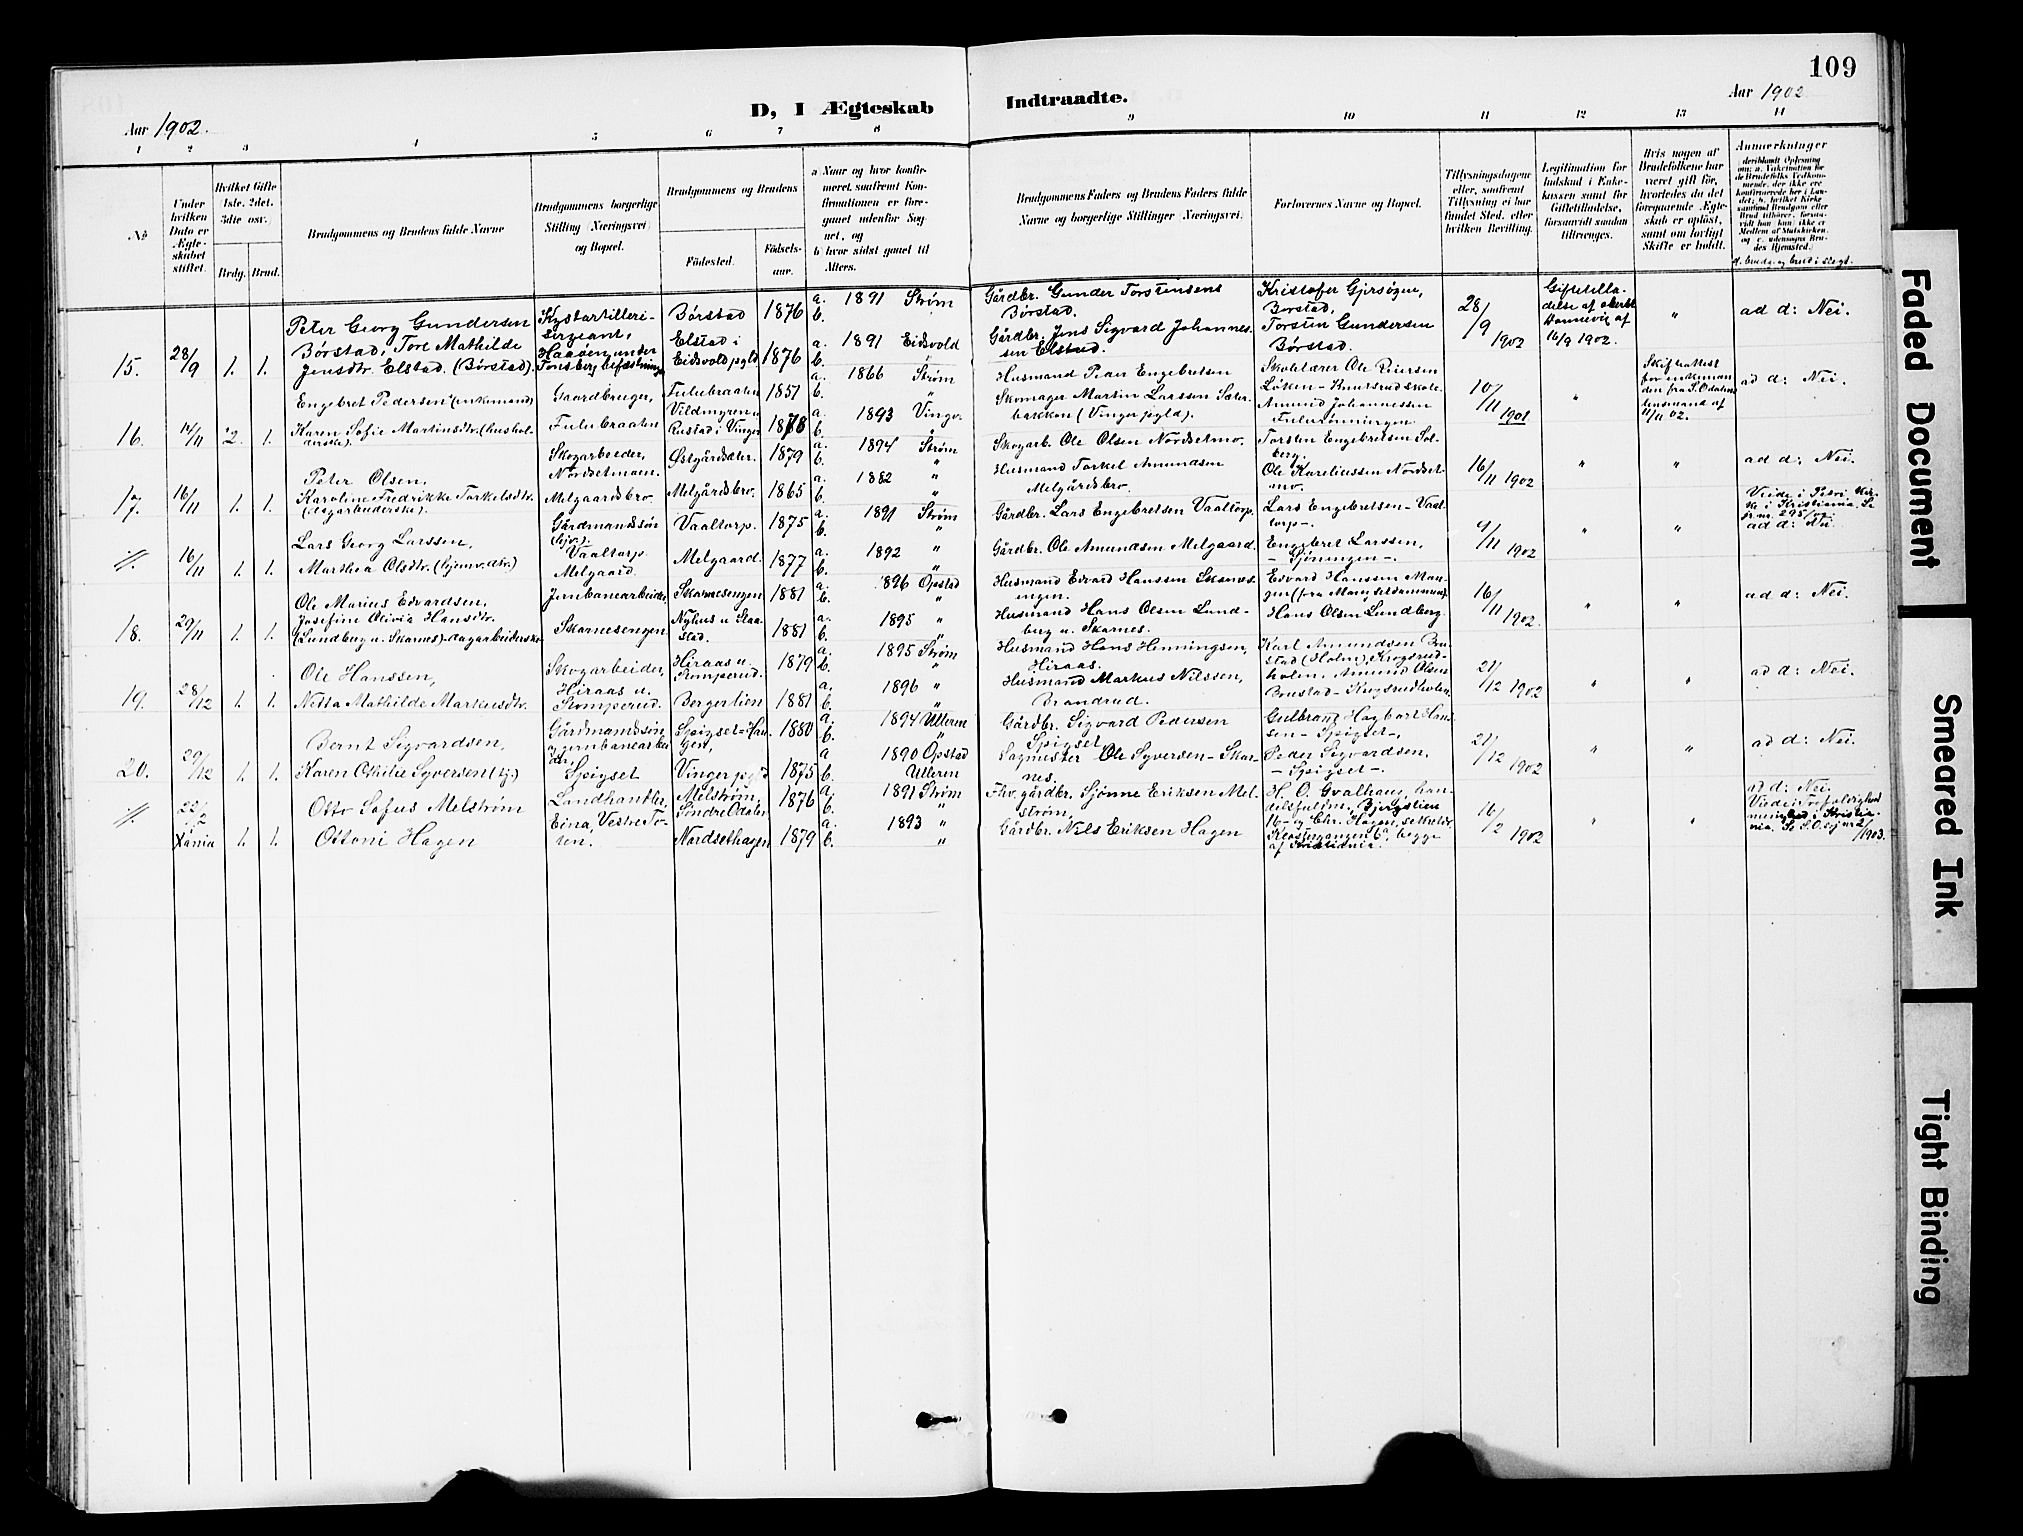 109
D, I Ægteskab Indtraadte.
Aar 1902.
Aar 1902
1 2 3 4 5 6 7 8 9 10 11 12 13 14
No
Under hvilken Dato er Ægteskabet stiftet.
Hvilket Gifte 1ste, 2det, 3dte osv.
Brdg. Brud.
Brudgommens og Brudens fulde Navne
Brudgommens borgerlige Stilling (Næringsvei) og Bopæl.
Brudgommens og Brudens
Födested. Födsels-aar.
a) Naar og hvor konfirmeret, saafremt Konfirmationen er foregaaet udenfor Sognet, og
b) hvor sidst gaaet til Alters.
Brudgommens Faders og Brudens Faders fulde Navne og borgerlige Stillinger (Næringsvei).
Forlovernes Navne og Bopæl.
Tillysningsdagene eller, saafremt Tillysning ei har fundet Sted, efter hvilken Bevilling.
Legitimation for Indskud i Enkekassen samt for Giftetilladelse, forsaavidt saadan tiltrænges.
Hvis nogen af Brudefolkene har været gift för, hvorledes da det foregaaende Ægteskab er oplöst, samt om lovligt Skifte er holdt.
Anmærkninger
d. brudg. og brud i slægt.
15. 28/9 1. 1.
Peter Georg Gundersen
Børstad, Tore Mathilde
Jensdtr. Elstad. (Børstad).
Kystartilleri-
sergeant,
Børstad 1876
Elstad i
Eidsvold pgld 1876
a. 1891 Strøm
b.
a. 1891 Eidsvold
b. "
Gårdbr. Gunder Torstensens
Børstad.
Gårdbr. Jens Sigvard Johannes-
sen Elstad.
Kristofer Gjersøgen,
Børstad,
Torsten Gundersen
Børstad.
28/9 1902
Giftetilla-
delse af
16/9 1902.
"
ad d: Nei.
16. 14/11 2. 1.
Engebret Pedersen (enkemand)
Karen Sofie Martinsdtr. (hushol-
derske).
Gaardbruger,
Fulubraaten
Fulubraaten 1851
Vildmyren u.
Rustad i Vinger 1878
a. 1866 Strøm
b. "
a. 1893 Vinger
b. "
Husmand Peder Engebretsen
Skomager Martin Larssen Sæter-
bakken (Vinger pgld).
Skolelærer Ole Petersen
Løken - Knutsrud skole.
Amund Johannessen
Fulurønningen
10/11 1901
"
Skifteattest
for enkeman-
den fra S. Odalens
lensmand af
11/11 02.
ad d: Nei.
17. 16/11 1. 1.
Peter Olsen,
Karoline Fredrikke Torkelsdtr.
(dagarbeiderske).
Skogarbeider,
Nordsetmoen.
Melgaardsbro.
Østgårdsæter. 1879
Melgårdsbro. 1865
a. 1894 Strøm
b. "
a. 1882 "
b. "
Skogarb. Ole Olsen Nordsetmo.
Husmand Torkel Amundsen
Melgårdsbro.
Torsten Engebretsen Sol-
berg.
Ole Kareliussen Nordset-
mo.
16/11 1902
" "
ad d: Nei.
//. 16/11 1. 1.
Lars Georg Larssen,
Marthea Olsdtr. (hjemv. dtr.)
Gårdmandssøn
(hjv.).
Vaaltorp.
Melgaard.
Vaaltorp. 1875
Melgaard. 1877
a. 1891 Strøm
b. "
a. 1892 "
b.
Gårdbr. Lars Engebretsen Vaaltorp.
Gårdbr. Ole Amundsen Melgaard.
Lars Engebretsen - Vaal-
torp -.
Engebret Larssen,
- Gjøningen -.
9/11 1902
" "
Viede i Petri kir-
ke i Kristiania. Se
jr. nr. 295/02
ad d: Nei
18. 29/11 1. 1.
Ole Marius Edvardsen,
Josefine Olivia Hansdtr.
(Lundberg u. Skarnes) dagarbeiderske
Jernbanearbeider,
Skarnesengen
Skarnesengen 1881
Nyhus u. Slaa-
stad. 1881
a. 1896 Opstad
b. "
a. 1895 "
b. "
Husmand Edvard Hanssen Skarnes-
engen.
Husmand Hans Olsen Lund-
berg u. Skarnes.
Edvard Hanssen Man-
gen (fra Mangsetdammen).
Hans Olsen Lundberg.
16/11 1902.
" "
ad d: Nei.
19. 28/12 1. 1.
Ole Hanssen,
Netta Mathilde Markusdtr.
Skogarbeider,
Hiraas u.
Stomperud.
Hiraas u.
Stomperud. 1879
Bergerlien 1881
a. 1895 Strøm
b. "
a. 1896 "
b. "
Husmand Hans Henningsen,
Hiraas.
Husmand Markus Nilssen,
Brandrud.
Karl Amundsen Bru-
stad (Holm), Krogsrud-
holen. Amund Olsen
Brustad - Krogsrudholen.
21/12 1902
" "
ad d: Nei.
20. 29/12 1. 1.
Bernt Sigvardsen,
Karen Othilie Syversen (hj.)
Gårdmandssøn
og jernbanearbei-
der,
Spigset
Spigset - Hau-
gen, 1880
Vinger pgld 1875
a. 1894 Ulleren
b. "
a. 1890 Opstad
b. Ulleren
Gårdbr. Sigvard Pedersen
Spigset,
Sagmester Ole Syversen - Skar-
nes.
Gulbrand Hagbart Han-
sen - Spigset -.
Peder Sigvardsen,
- Spigset -.
21/12 1902
" "
ad d: Nei.
//. 22/2 i Xania 1. 1.
Otto Sofus Melstrøm
Ottoni Hagen
Landhandler,
Eina, Vestre To-
ten.
Melstrøm,
Søndre Odalen 1876
Nordsethagen 1879
a. 1891 Strøm
b. "
a. 1893 "
b. "
Fhv. gårdbr. Sjønne Eriksen Mel-
strøm,
Gårdbr. Nils Eriksen Hagen
H. O. Gvalhaus, han-
delsfuldm. Bjergslien
16 - og Chr. Hagen, sekretær
begge
af Kristiania.
16/2 1902
" "
ad d: Nei.
Viede i Trefoldighed
menighed i Kristia-
nia. Se 2/1903.
Faded Document
Smeared Ink
Tight Binding